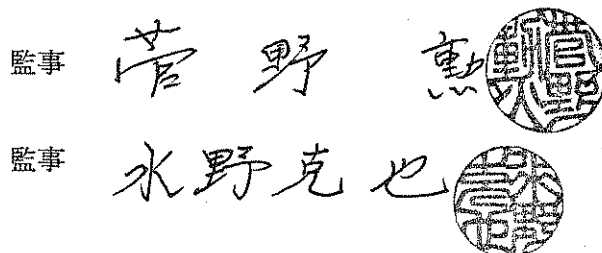 監事 菅野 勲
監事 水野克也